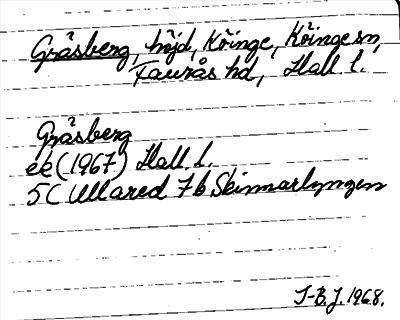 Gräsberg, höjd, Köinge, Köinge sn,
Faurås hd, Hall l.
Gräsberg
ek (1967) Hall l.
5C Ullared 7b Skinnarlyngen
J-B.J. 1968.